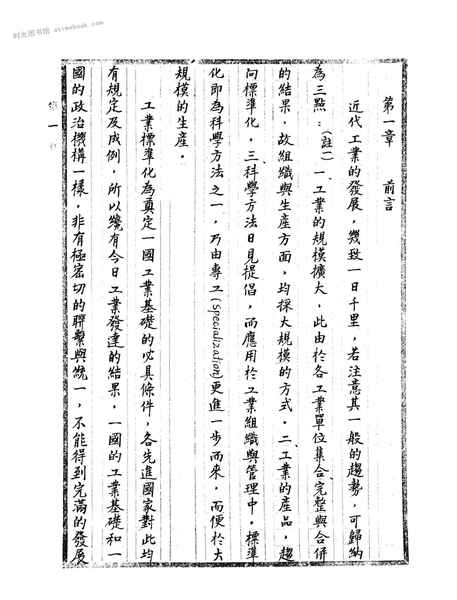 时光图书馆 atimebook.com
第一章　前言
近代工業的發展，幾致一日千里，若注意其一般的趨勢，可歸納
為三點：（註一）一、工業的規模擴大，此由於各工業單位集合完整與合併
的結果，故組織與生產方面，均採大規模的方式．二、工業的產品，趨
向標準化．三、科學方法日見提倡，而應用於工業組織與管理中，標準
化即為科學方法之一，乃由專工(Specialization)更進一步而來，而便於大
規模的生產．
工業標準化為奠定一國工業基礎的必具條件，各先進國家對此均
有規定及成例，所以纔有今日工業發達的結果，一國的工業基礎和一
國的政治機構一樣，非有極密切的聯繫與統一，不能得到完滿的發展
第一